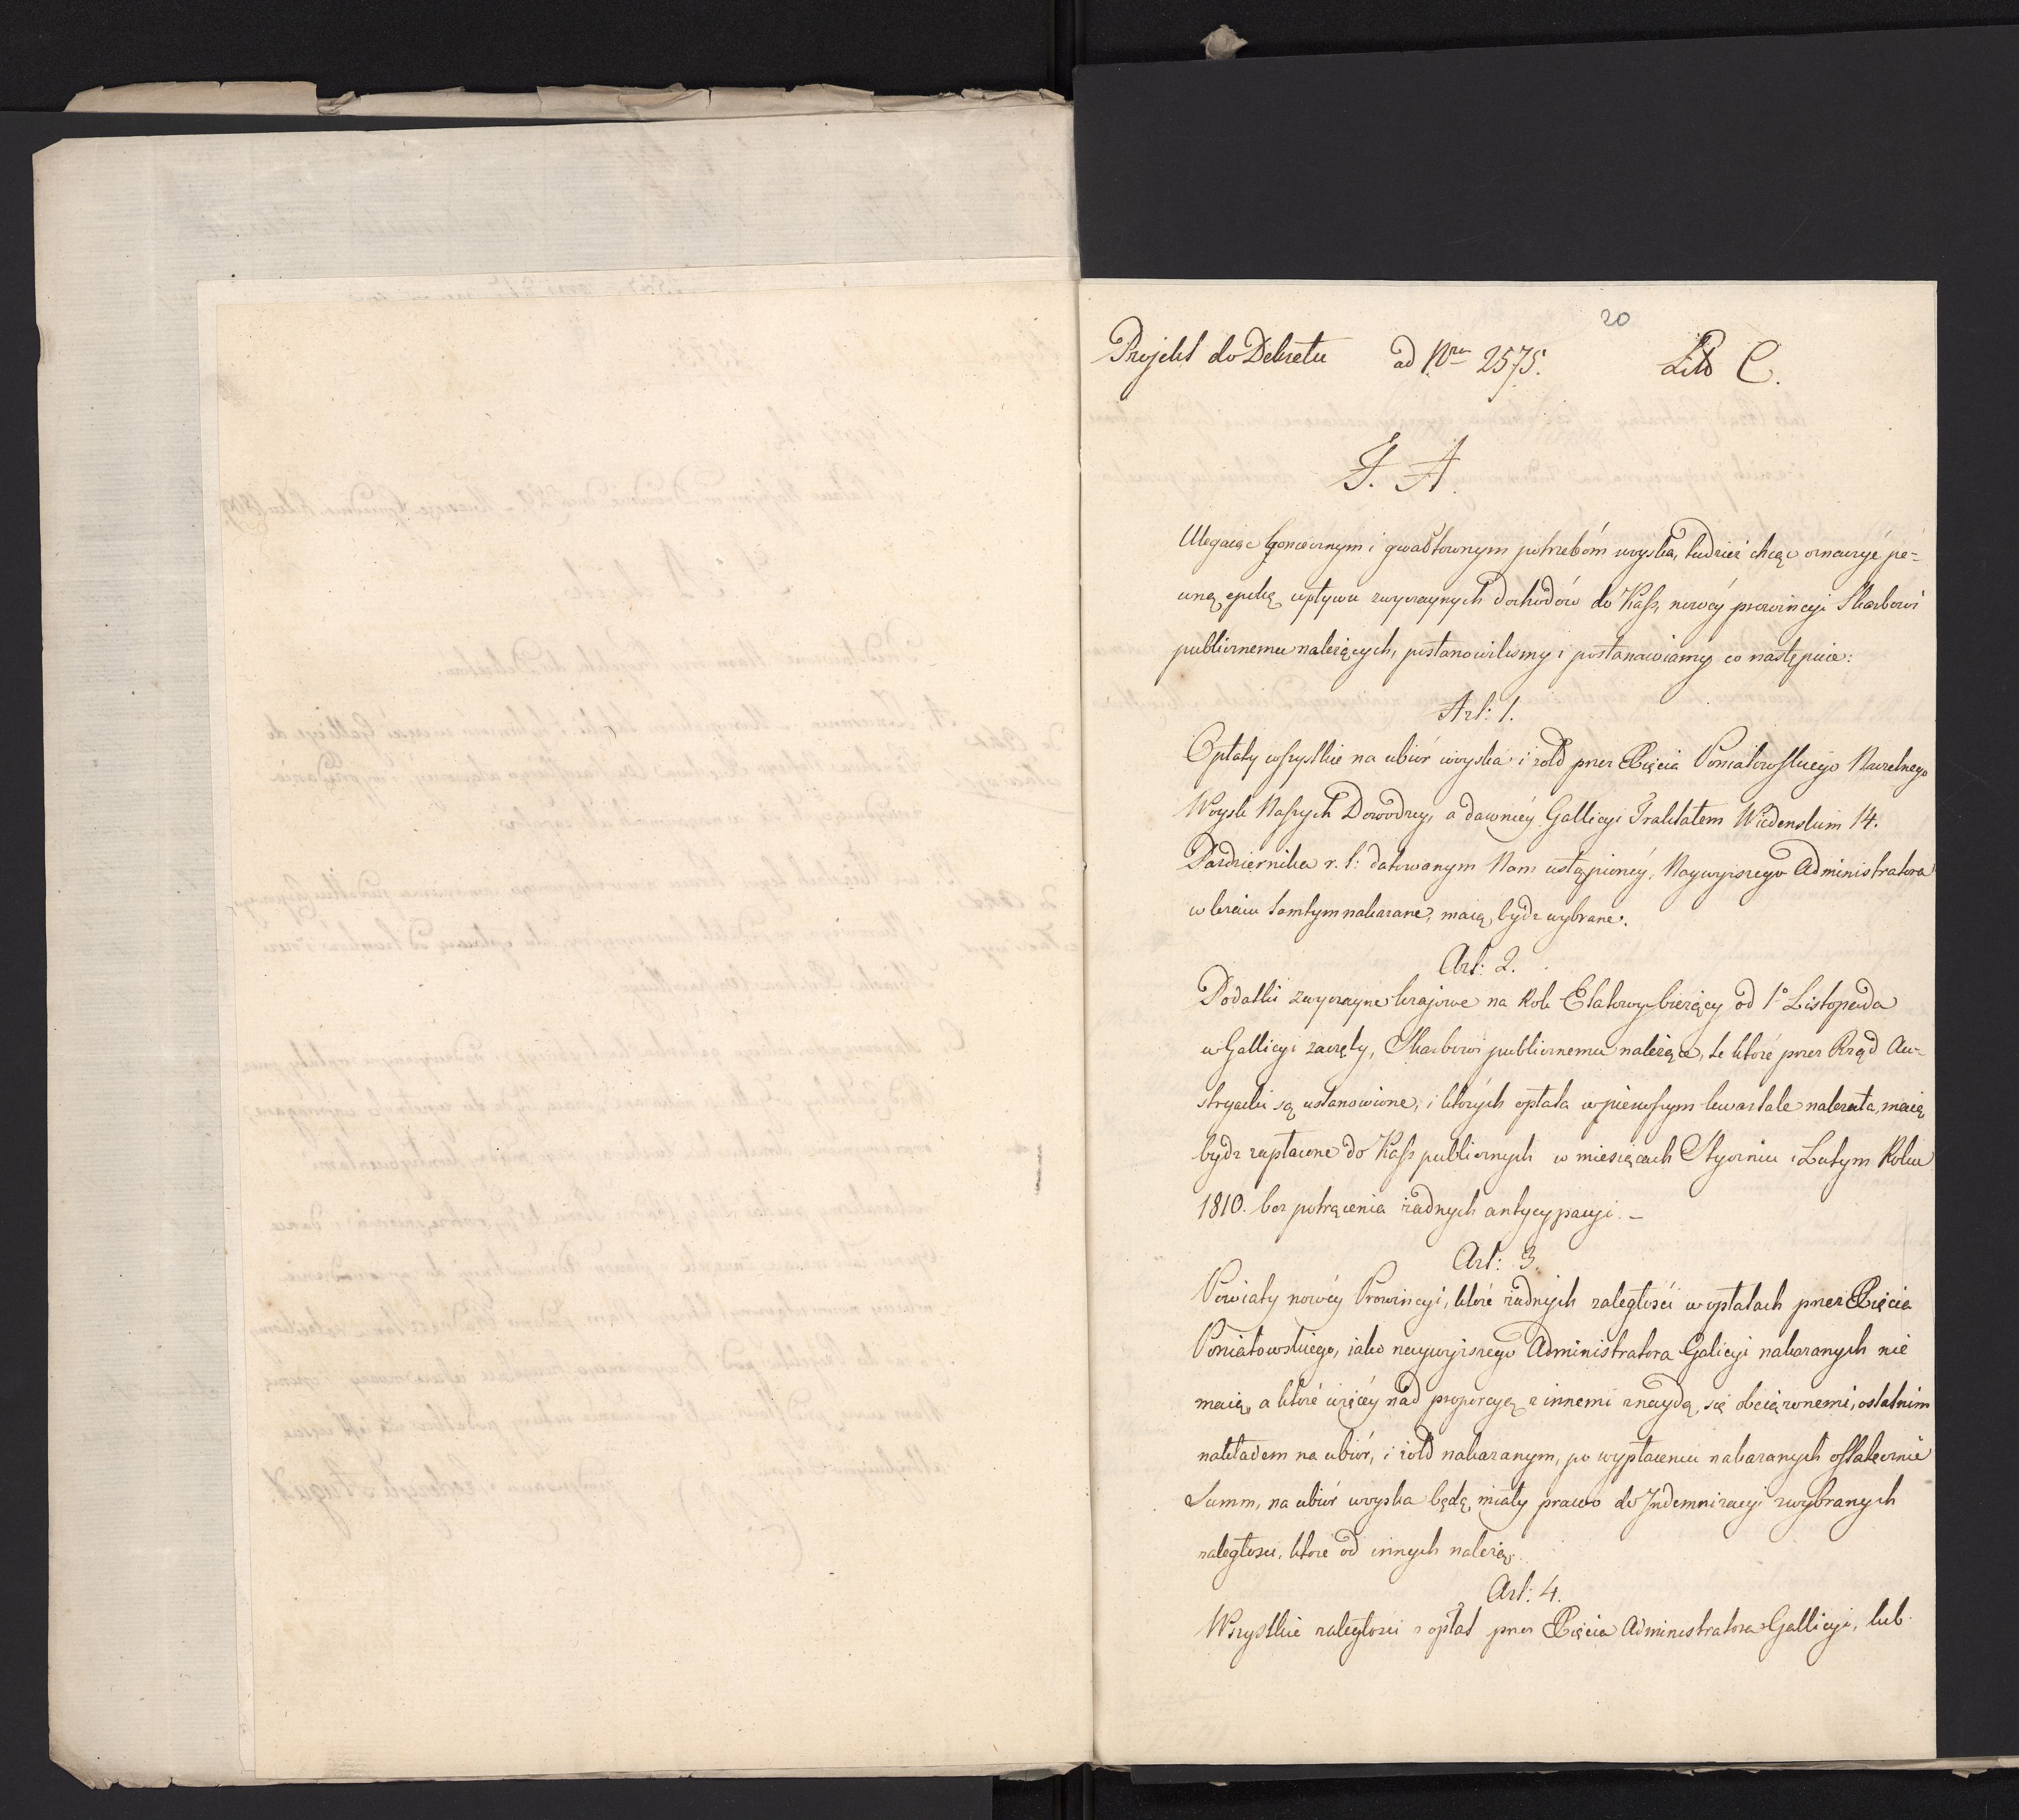 20
Projekt do Dekretu ad Nrm 2575. Litt C.
F. A.
Ulegaiąc koniecznym i gwałtownym potrzebóm woyska, tudzież chcąc oznaczyć pe-
wną epokę wpływu zwyczaynych dochodów do Kass, nowéy prowincyi Skarbowi
publicznemu należących, postanowilismy i postanawiamy co następuie:
Art: 1.
Opłaty wszystkie na ubiór woyska i żołd przez Xięcia Poniatowskiego Naczelnego
Woysk Naszych Dowodzcy, a dawniéy Gallicyi Traktatem Wiedenskim 14.
Pazdziernika r. b: datowanym Nam ustąpionéy, Naywyższego Administratora
w kraiu tamtym nakazane, maią bydz wybrane.
Art: 2.
Podatki zwyczayne krajowe na Rok Etatowy bieżący od 1o Listopada
w Gallicyi zaczęty, Skarbowi publicznemu należące, te które przez Rząd Au-
stryacki są ustanowione, i których opłata w pierwszym kwartale należała, maią
bydz zapłacone do Kass publicznych w miesiącach Styczniu i Lutym Roku
1810. bez potrącenia żadnych antycypacyi. –
Art: 3.
Powiaty nowéy Prowincyi, które żadnych zaległości w opłatach przez Xięcia
Poniatowskiego, iako naywyższego Administratora Galicyi nakazanych nie
maią, a które więcéy nad proporcyą z innemi znaydą się obciążonemi, ostatnim
nakładem na ubiór, i żołd nakazanym, po wypłaceniu nakazanych ostatecznie
Summ, na ubiór woyska będą miały prawo do Indemnizacyi z wybranych
zaległosci, które od innych należą.
Art: 4.
Wszystkie zaległosci z opłat przez Xięcia Administratora Gallicyi, lub